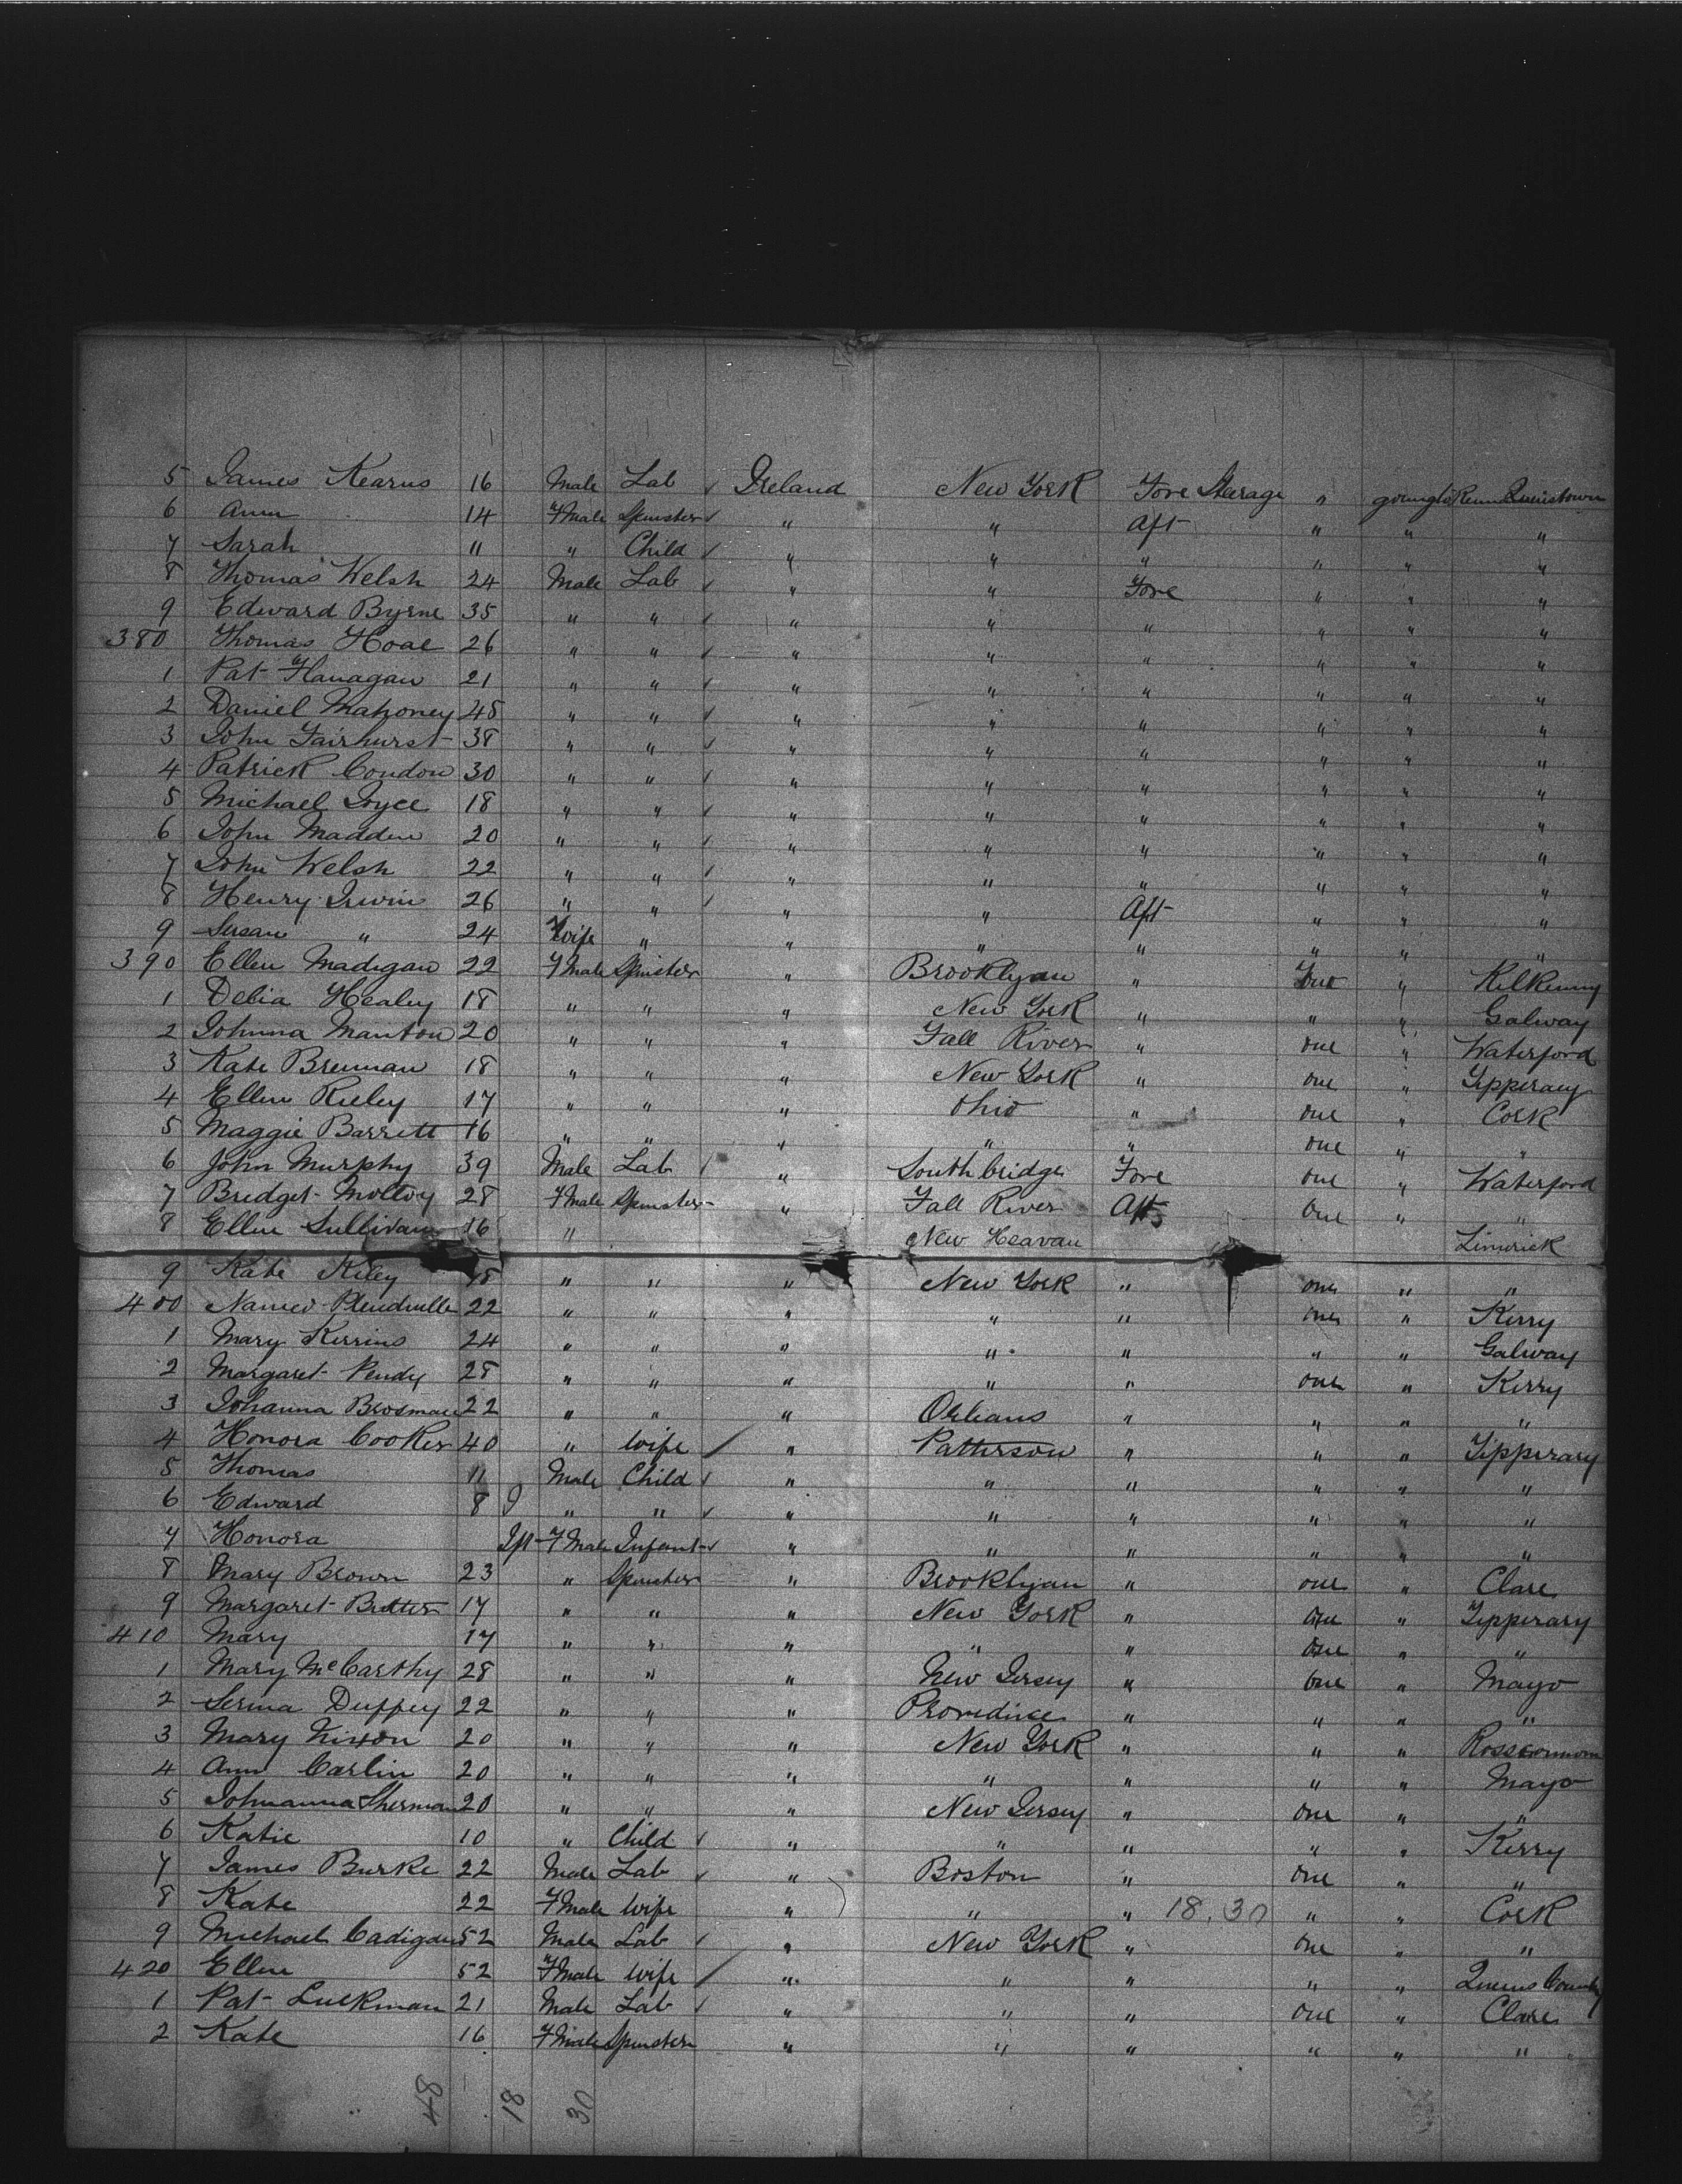 5 James Kearns 16 Male Lab ✓ Ireland New York Fore Stearage " going to Remn Quinstown
6 Ann 14 F Male Spinster ✓ " " Aft " " "
7 Sarah 11 " Child ✓ " " " " " "
8 Thomas Welsh 24 Male Lab ✓ " " Fore " " "
9 Edward Byrne 35 " " ✓ " " " " " "
380 Thomas Hoae 26 " " ✓ " " " " " "
1 Pat Flanagan 21 " " ✓ " " " " " "
2 Daniel Mahoney 45 " " ✓ " " " " " "
3 John Fairhurst 38 " " ✓ " " " " " "
4 Patrick Condon 30 " " ✓ " " " " " "
5 Michael Joyce 18 " " ✓ " " " " " "
6 John Madden 20 " " ✓ " " " " " "
7 John Welsh 22 " " ✓ " " " " " "
8 Henry Irwin 26 " " ✓ " " Aft " " "
9 Susan " 24 Wife " " " " " " "
390 Ellen Madigan 22 F Male Spinster " Brooklyan " " Kilkenny
1 Delia Healey 18 " " " New York " " " Galway
2 Johnna Manton 20 " " " Fall River " one " Waterford
3 Kate Brennan 18 " " " New York " one " Tipperary
4 Ellen Rieley 17 " " " Ohio " one " Cork
5 Maggie Barrett 16 " " " " " one " "
6 John Murphy 39 Male Lab ✓ " Southbridge Fore one " Waterford
7 Bridget Molloy 28 F Male Spinster " Fall River Aft One " "
8 Ellen Sullivan 16 " New Heavan Limrick
9 Kate Kiley 18 " " " New York " one " "
400 22 " " " " " one " Kerry
1 Mary Kerrins 24 " " " " " " " Galway
2 Margaret Pendy 28 " " " " " one " Kerry
3 Johanna Brosman 22 " " " Orleans " " " "
4 Honora Cooker 40 " Wife " Patterson " " " Tipperary
5 Thomas 11 Male Child ✓ " " " " " "
6 Edward 8 " " ✓ " " " " " "
7 Honora Ift F Male Infant ✓ " " " " " "
8 Mary Brown 23 " Spinster " Brooklyan " one " Clare
9 Margaret Butter 17 " " " New York " One " Tipperary
410 Mary 17 " " " " " One " "
1 Mary McCarthy 28 " " " New Jersey " One " Mayo
2 Serina Duffey 22 " " " Providince " " " "
3 Mary Nixon 20 " " " New York " " " Rosscommom
4 Ann Carlin 20 " " " " " " " Mayo
5 Johnanna Sherman 20 " " " New Jersey " one " "
6 Katie 10 " Child ✓ " " " " " Kerry
7 James Burke 22 Male Lab ✓ " Boston " one " "
8 Kate 22 F Male Wife " " " 18.30 " " Cork
9 Michael Cadigan 52 Male Lab ✓ " New York " One " "
420 Ellen 52 F Male Wife " " " " " Queens County
1 Pat Luckman 21 Male Lab ✓ " " " one " Clare
2 Kate 16 F Male Spinster " " " " " "
48 18 30